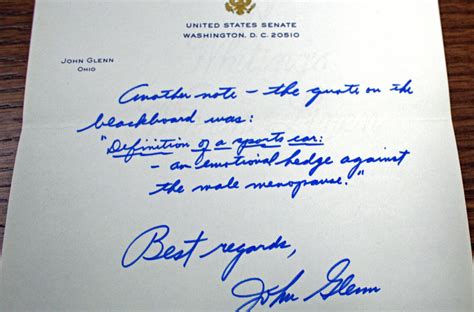 UNITED STATES SENATE
WASHINGTON, D. C. 20510
JOHN GLENN
OHIO
Another note - the quote on the
blackboard was:
"Definition of a sports car:
- an emotional hedge against
the male menopause."
Best regards,
John Glenn